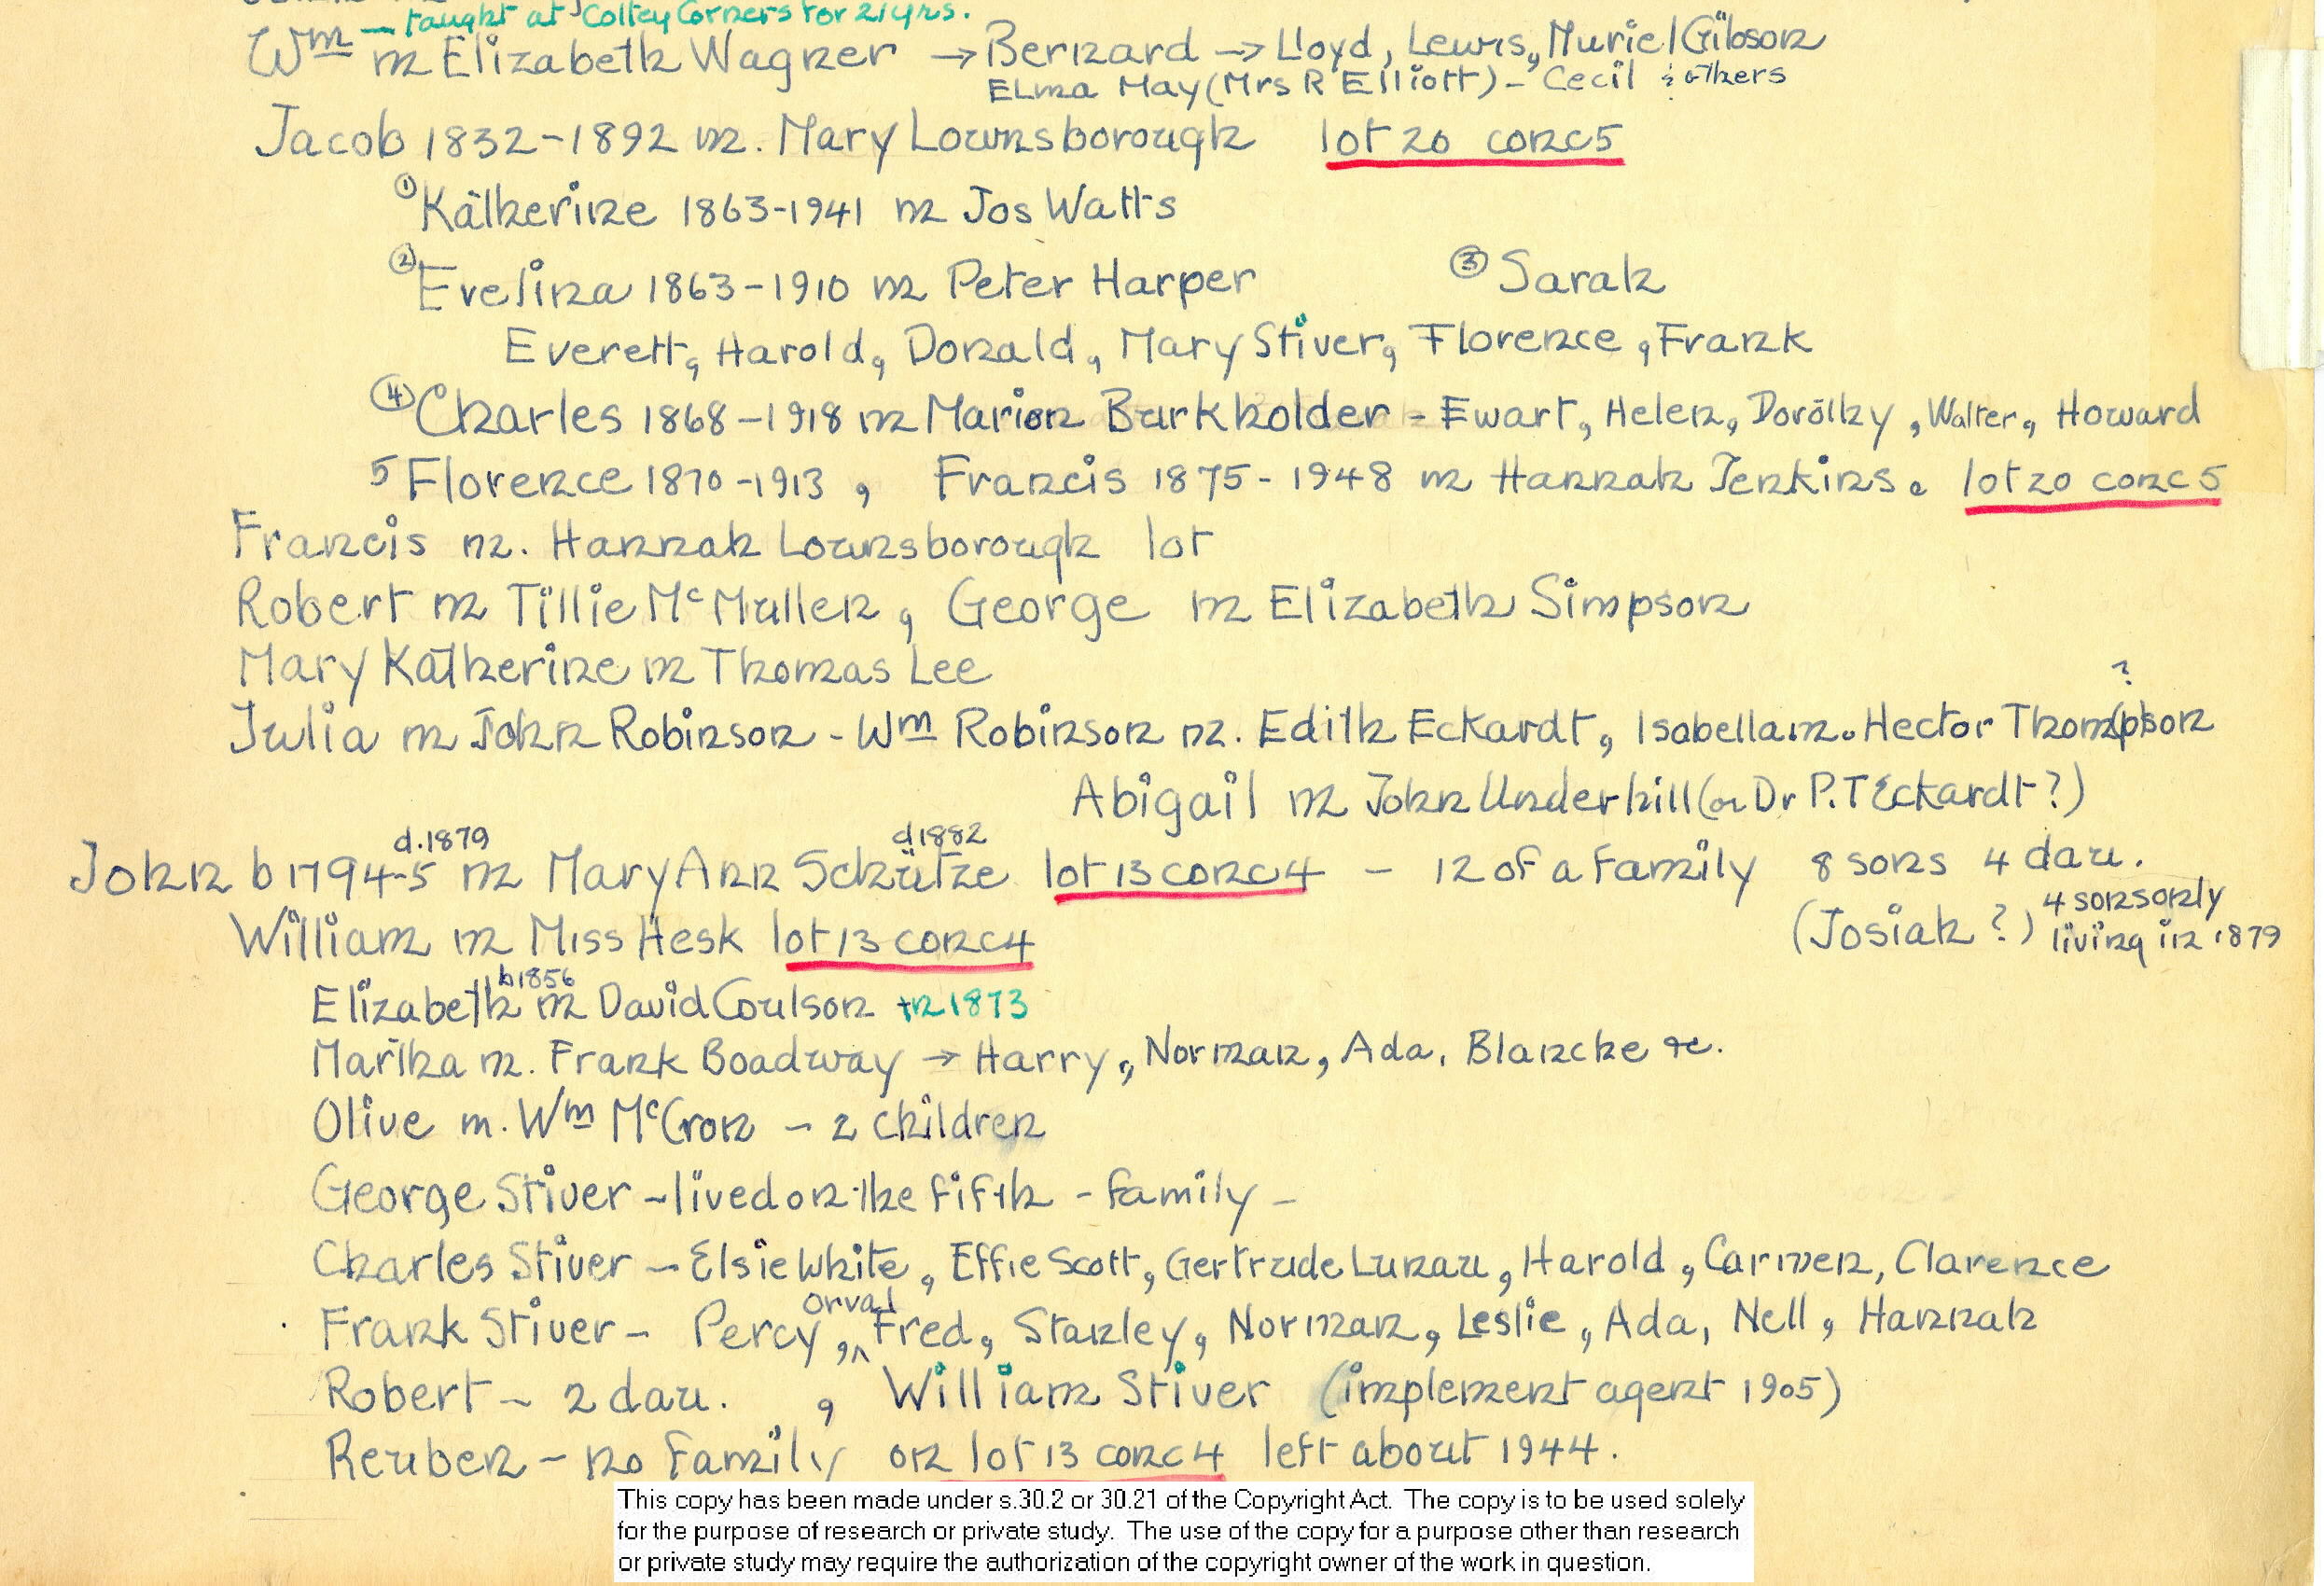 — taught at Colty Corners for 21 yrs.
Wm m Elizabeth Wagner → Bernard → Lloyd, Lewis, Muriel Gibson
Elma May (Mrs R Elliott) - Cecil & others
Jacob 1832-1892 m. Mary Lownsborough lot 20 conc 5
① Katherine 1863-1941 m Jos Watts
② Evelina 1863-1910 m Peter Harper ③ Sarah
Everett, Harold, Donald, Mary Stiver, Florence, Frank
④ Charles 1868-1918 m Marion Burkholder - Ewart, Helen, Dorothy, Walter, Howard
5 Florence 1870-1913, Francis 1875-1948 m Hannah Jenkins. lot 20 conc 5
Francis m. Hannah Lownsborough lot
Robert m Tillie McMullen, George m Elizabeth Simpson
Mary Katherine m Thomas Lee
?
Julia m John Robinson - Wm Robinson m. Edith Eckardt, Isabella m. Hector Thom(p)son
Abigail m John Underhill (or Dr P.T Eckardt?)
d.1879 d1882
John b 1794-5 m Mary Ann Schütze lot 13 conc 4 - 12 of a family 8 sons 4 dau.
William m Miss Hesk lot 13 conc 4 (Josiah?) 4 sons only living in 1879
b1856
Elizabeth m David Coulson in 1873
Martha m. Frank Boadway → Harry, Norman, Ada, Blanche &c.
Olive m. Wm McCron - 2 children
George Stiver - lived on the fifth - family -
Charles Stiver - Elsie White, Effie Scott, Gertrude Lunau, Harold, Carmen, Clarence
Orval
Frank Stiver - Percy, ^ Fred, Stanley, Norman, Leslie, Ada, Nell, Hannah
Robert - 2 dau. , William Stiver (implement agent 1905)
Reuben - no family on lot 13 conc 4 left about 1944.
This copy has been made under s.30.2 or 30.21 of the Copyright Act. The copy is to be used solely
for the purpose of research or private study. The use of the copy for a purpose other than research
or private study may require the authorization of the copyright owner of the work in question.